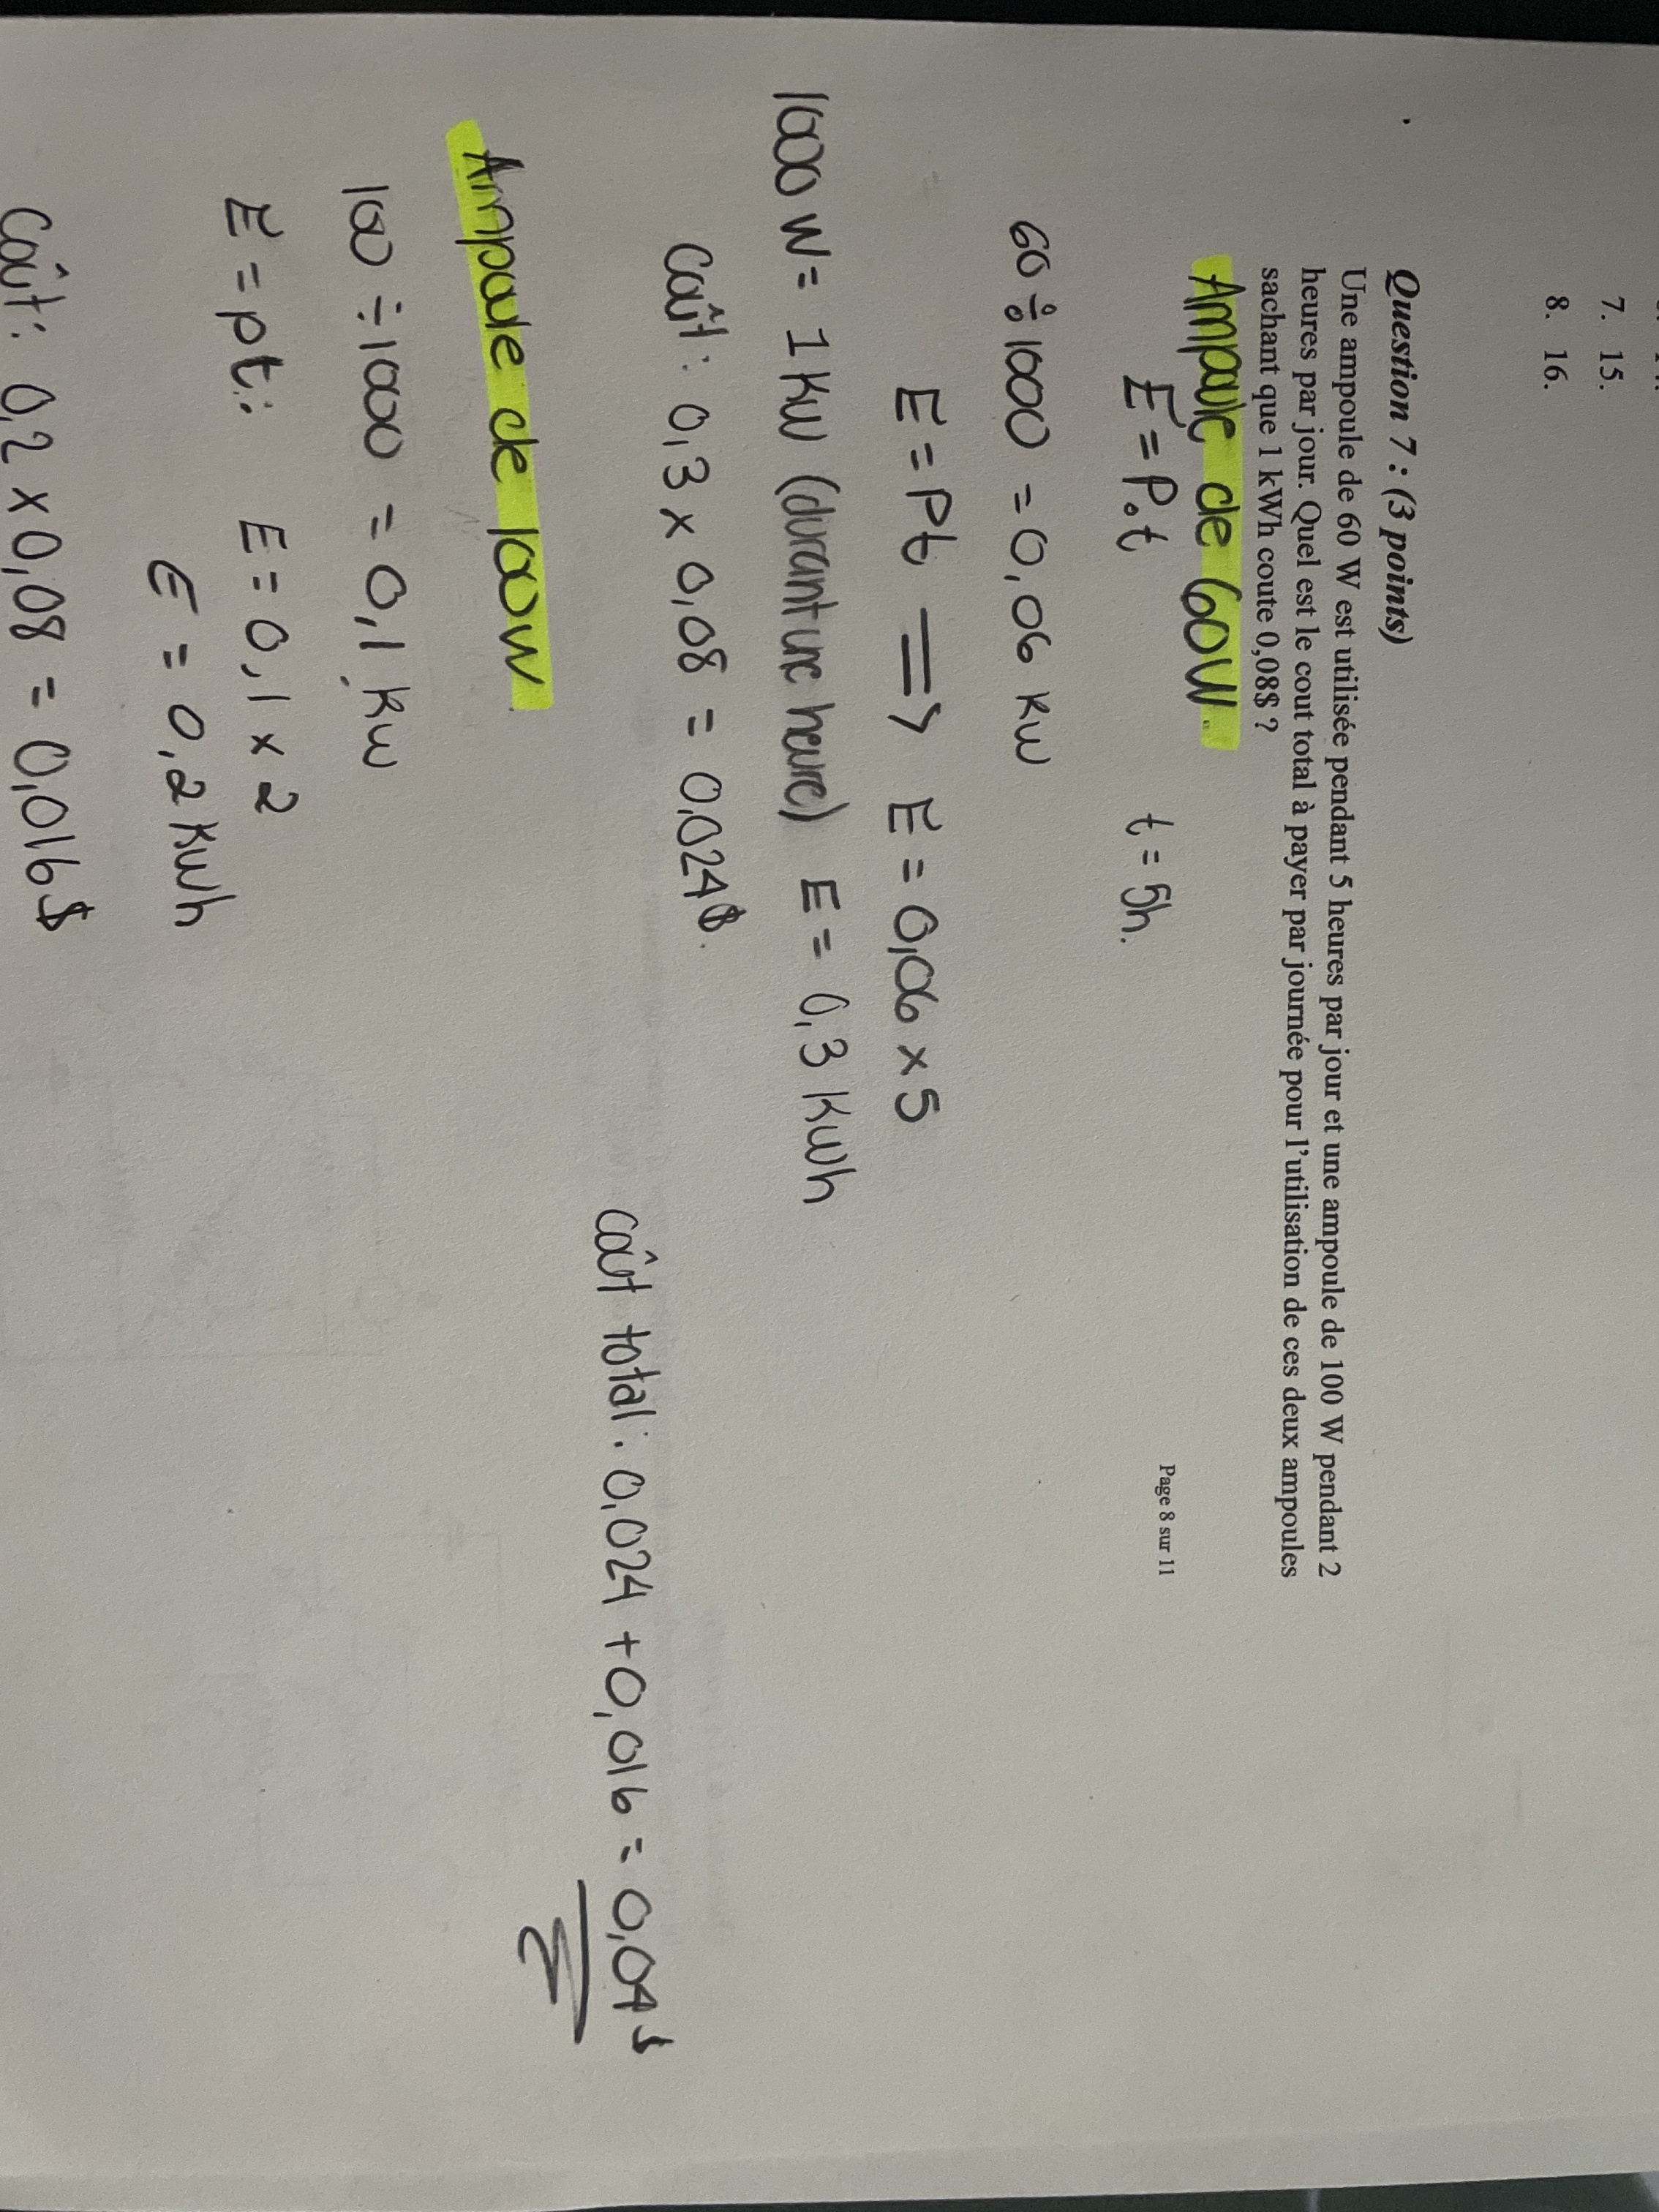 7. 15.
8. 16.
Question 7 : (3 points)
Une ampoule de 60 W est utilisée pendant 5 heures par jour et une ampoule de 100 W pendant 2
heures par jour. Quel est le cout total à payer par journée pour l'utilisation de ces deux ampoules
sachant que 1 kWh coute 0,08$ ?
Page 8 sur 11
Ampoule de 60W.
E = P.t t = 5h.
60 ÷ 1000 = 0,06 Kw
E = Pt ⇒ E = 0,06 × 5
1000 W = 1 Kw (durant une heure) E = 0,3 Kwh
Coût : 0,3 × 0,08 = 0,024$.
Coût total : 0,024 + 0,016 = 0,04$
Ampoule de 100W.
100 ÷ 1000 = 0,1 Kw
E = pt : E = 0,1 × 2
E = 0,2 Kwh
Coût : 0,2 × 0,08 = 0,016$